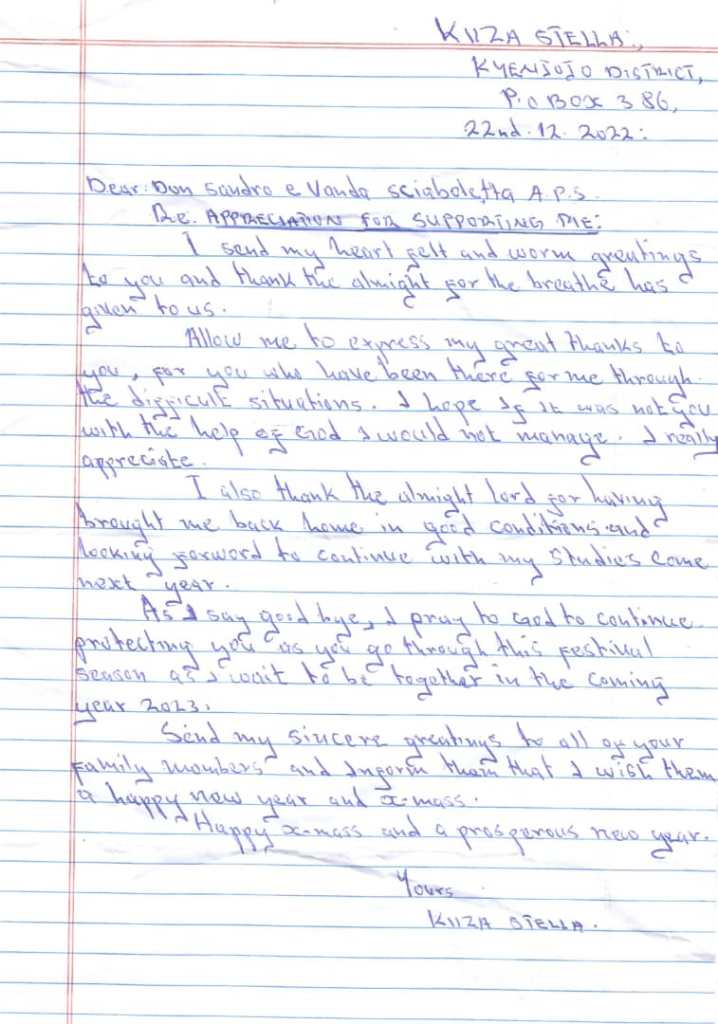 KIIZA STELLA.,
KYENJOJO DISTRICT,
P.O BOX 386,
22nd. 12. 2022:
Dear: Don Sandro e Vanda Sciaboletta A.P.S.
Re. APPRECIATION FOR SUPPORTING ME:
I send my heart felt and worm greatings
to you and thank the almight for the breathe has
given to us.
Allow me to express my great thanks to
you, for you who have been there for me through
the difficult situations. I hope If it was not you
with the help of God I would not manage. I really
appreciate.
I also thank the almight lord for having
brought me back home in good conditions and
looking forword to continue with my Studies come
next year.
As I say good bye, I pray to God to continue
protecting you as you go through this festival
season as I wait to be together in the coming
year 2023.
Send my sincere greatings to all of your
family members and Inform them that I wish them
a happy new year and x-mass.
Happy x-mass and a prosperous new year.
Yours
KIIZA STELLA.